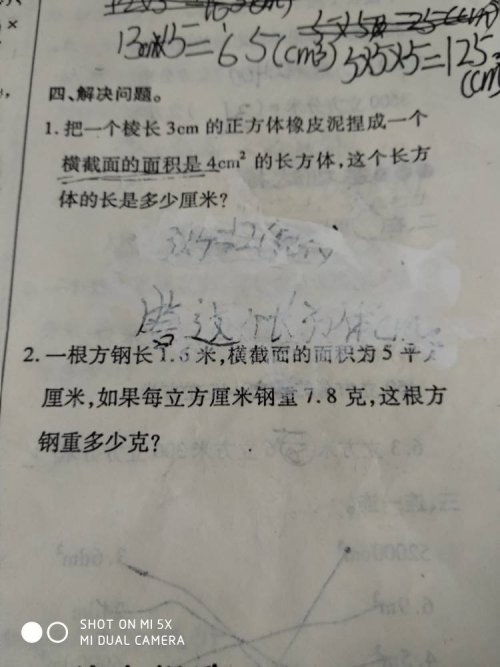 13cm×5=65(cm³) 5×5×5=125
(cm³)
四、解决问题。
1.把一个棱长3cm的正方体橡皮泥捏成一个
横截面的面积是4cm²的长方体,这个长方
体的长是多少厘米?
答这个长方体
2.一根方钢长1.6米,横截面的面积为5平方
厘米,如果每立方厘米钢重7.8克,这根方
钢重多少克?
SHOT ON MI 5X
MI DUAL CAMERA